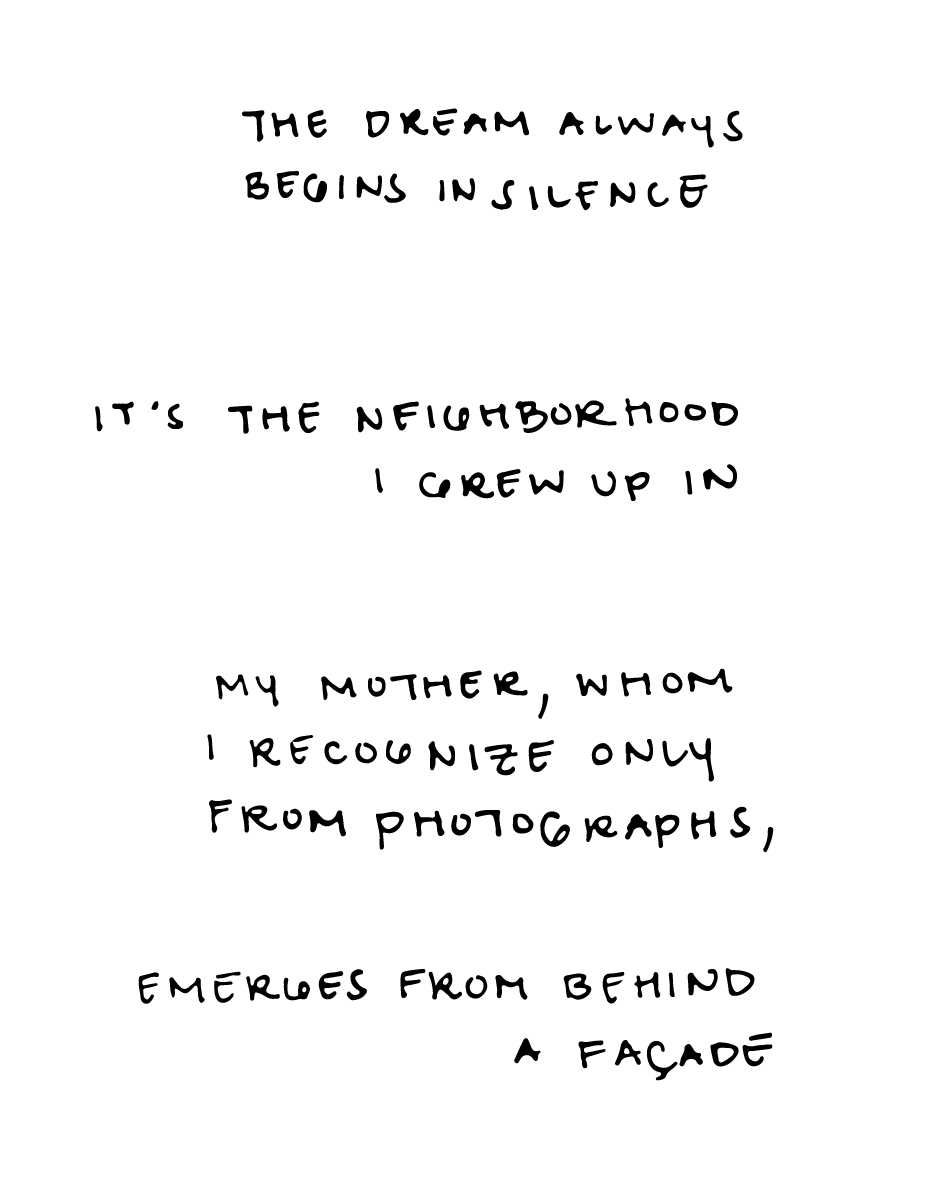 THE DREAM ALWAYS
BEGINS IN SILENCE
IT'S THE NEIGHBORHOOD
I GREW UP IN
MY MOTHER, WHOM
I RECOGNIZE ONLY
FROM PHOTOGRAPHS,
EMERGES FROM BEHIND
A FAÇADE